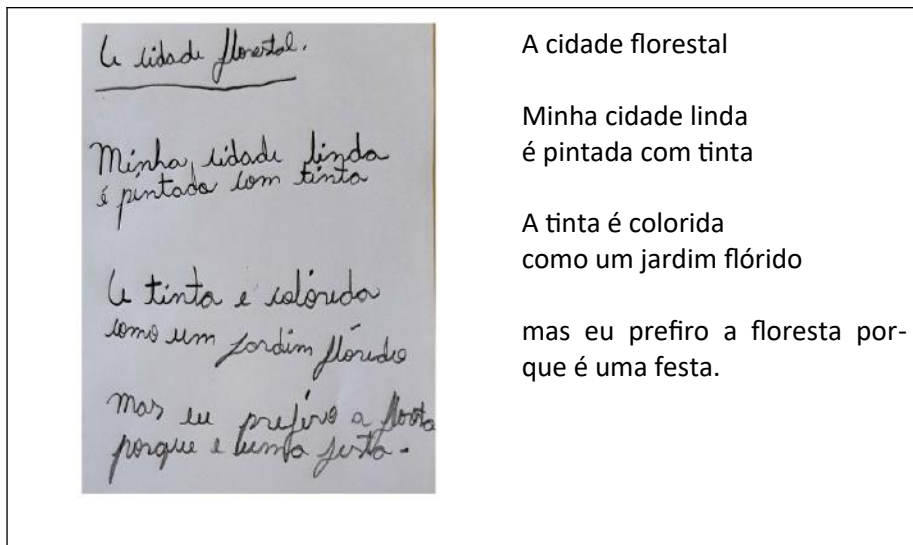 A cidade florestal.
Minha cidade linda
é pintada com tinta
A tinta e colórida
como um jardim flórido
mas eu prefiro a
porque e uma festa.
A cidade florestal
Minha cidade linda
é pintada com tinta
A tinta é colorida
como um jardim flórido
mas eu prefiro a floresta por-
que é uma festa.